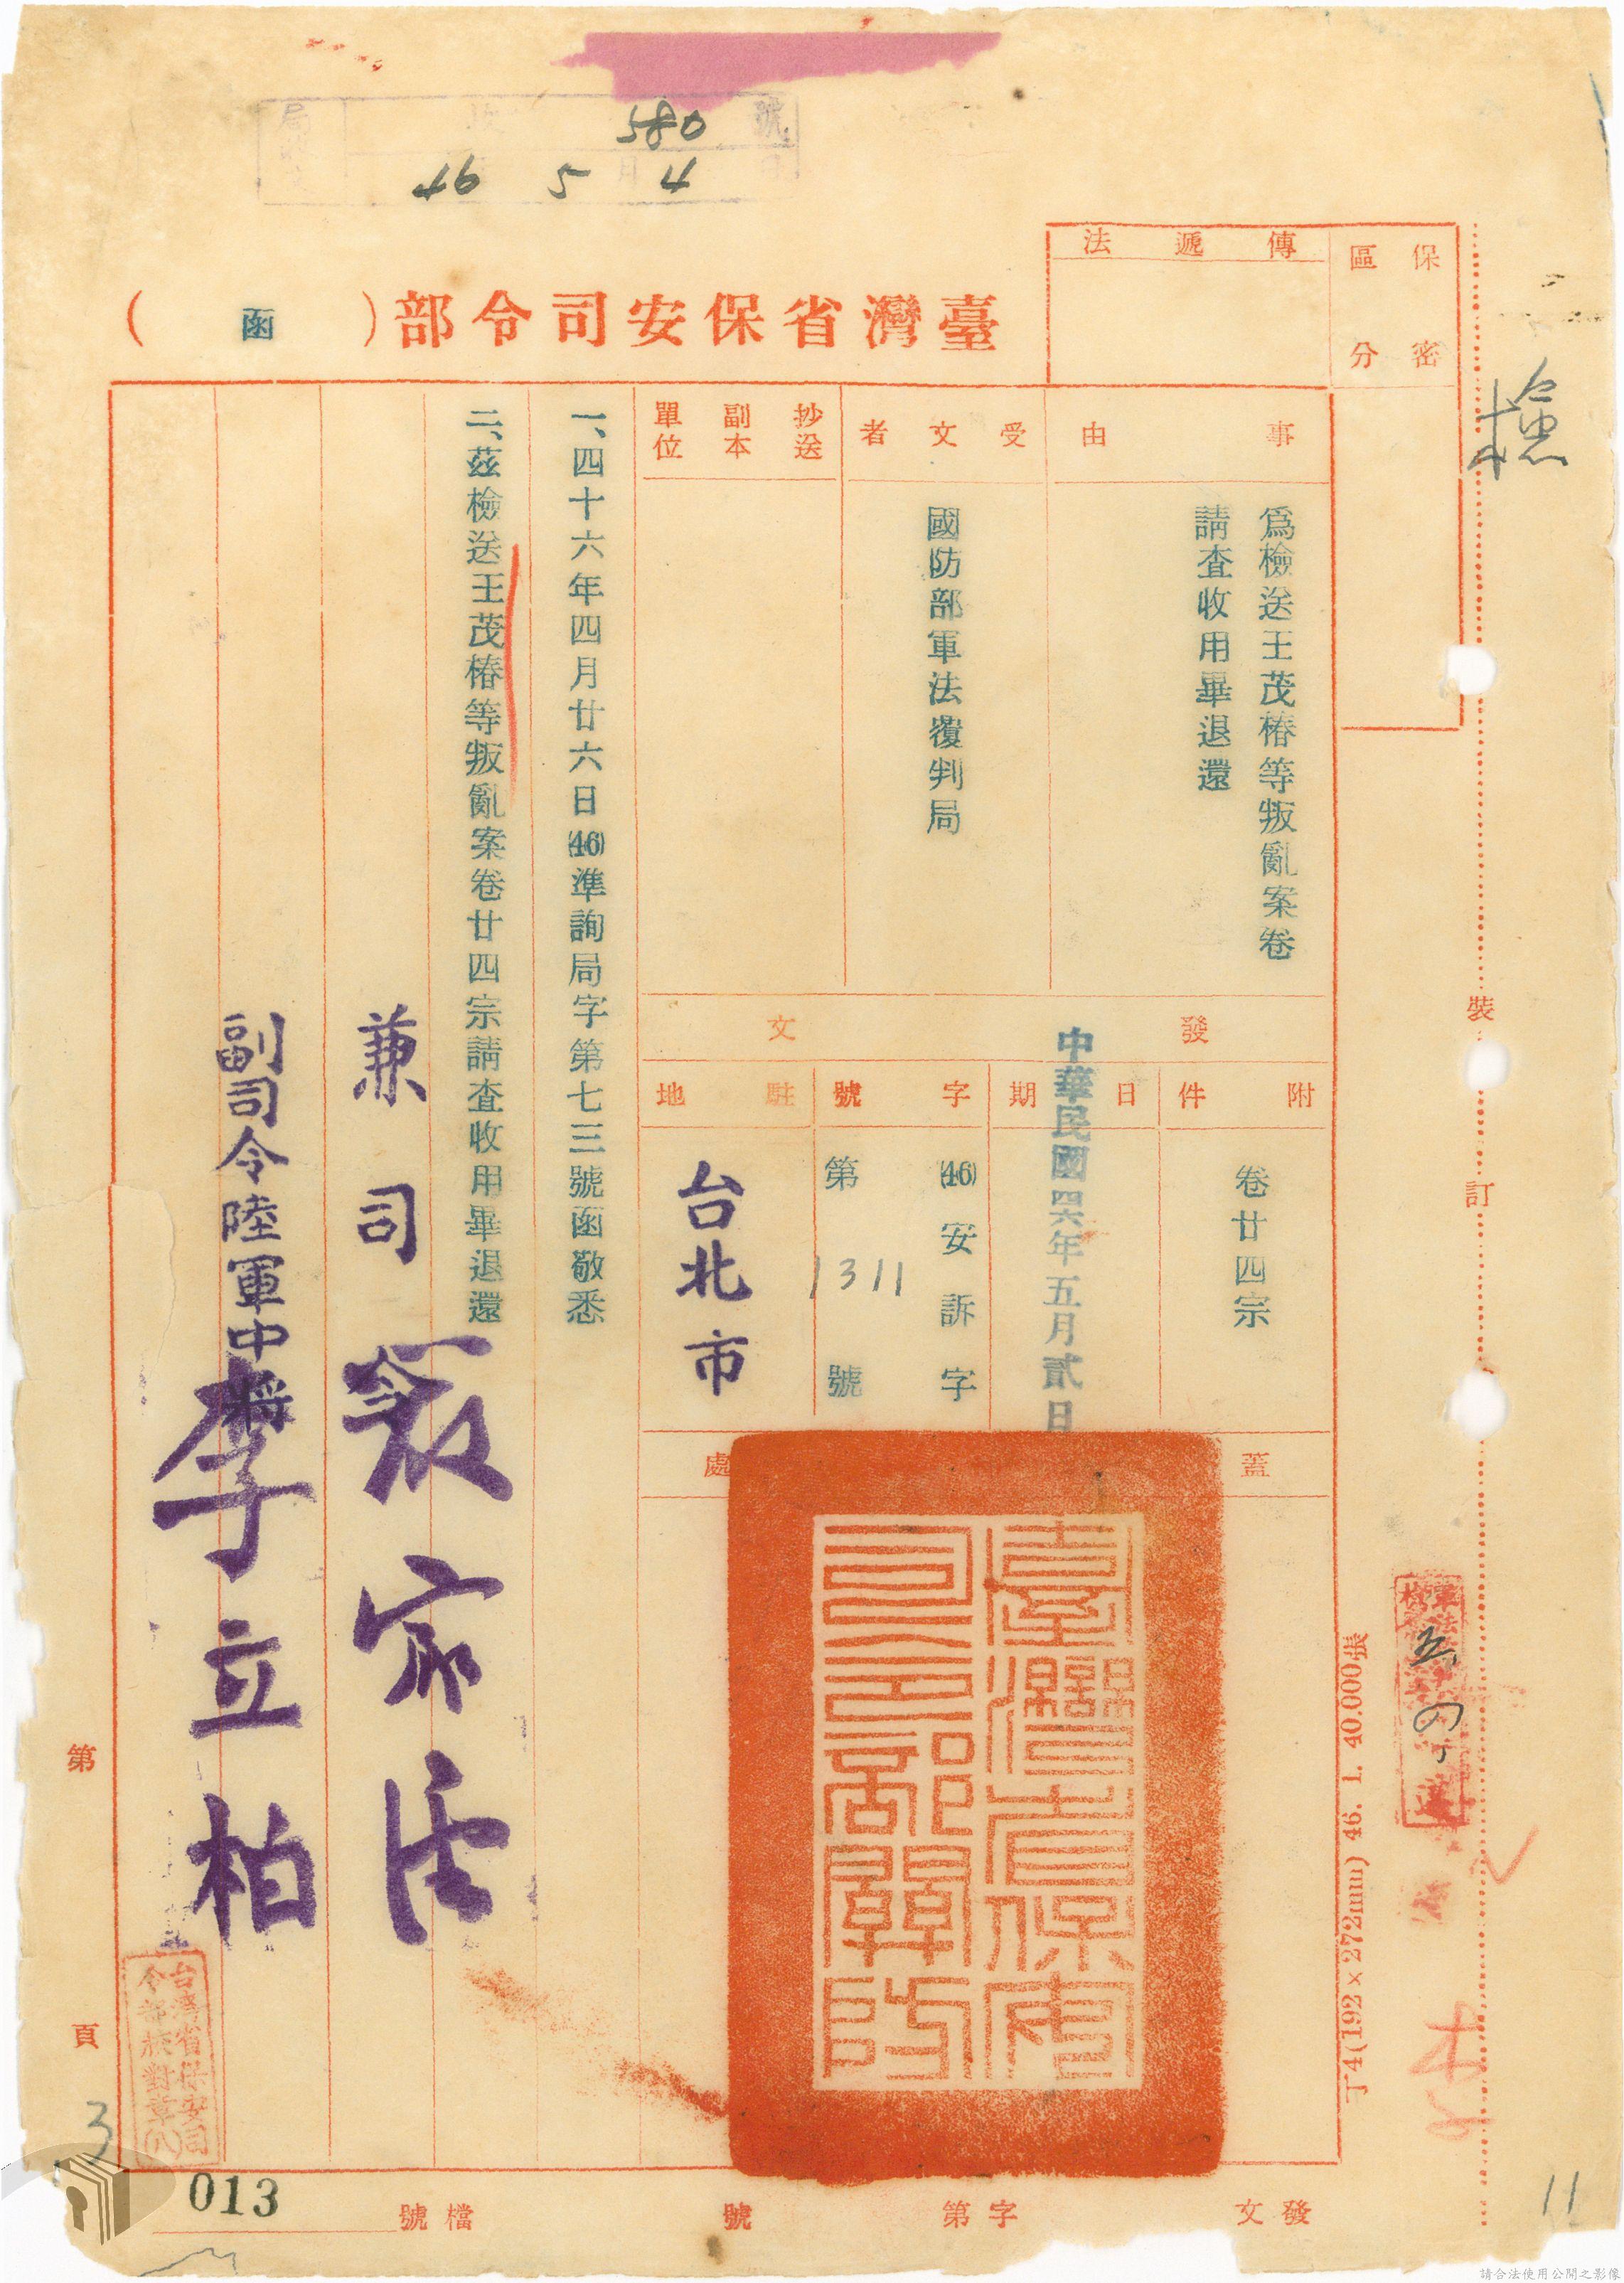 580號
46 5月4
檢
保密
區分
傳遞法
臺灣省保安司令部（函）
事由
為檢送王茂椿等叛亂案卷
請查收用畢退還
受文者
國防部軍法覆判局
抄送
副本
單位
發文
附件
卷廿四宗
日期
中華民國四六年五月貳日
字號
(46)安訴字
第1311號
駐地
台北市
蓋
處
臺灣省保安司令部關防
一、四十六年四月廿六日(46)準詢局字第七三號函敬悉
二、茲檢送王茂椿等叛亂案卷廿四宗請查收用畢退還
兼司令
副司令陸軍中將李立柏
台灣省保安司
令部校對章(八)
裝
訂
丁4(192×272mm) 46. 1. 40.000張
第
頁
3
發文
字第
號
檔號
013
11
請合法使用公開之影像